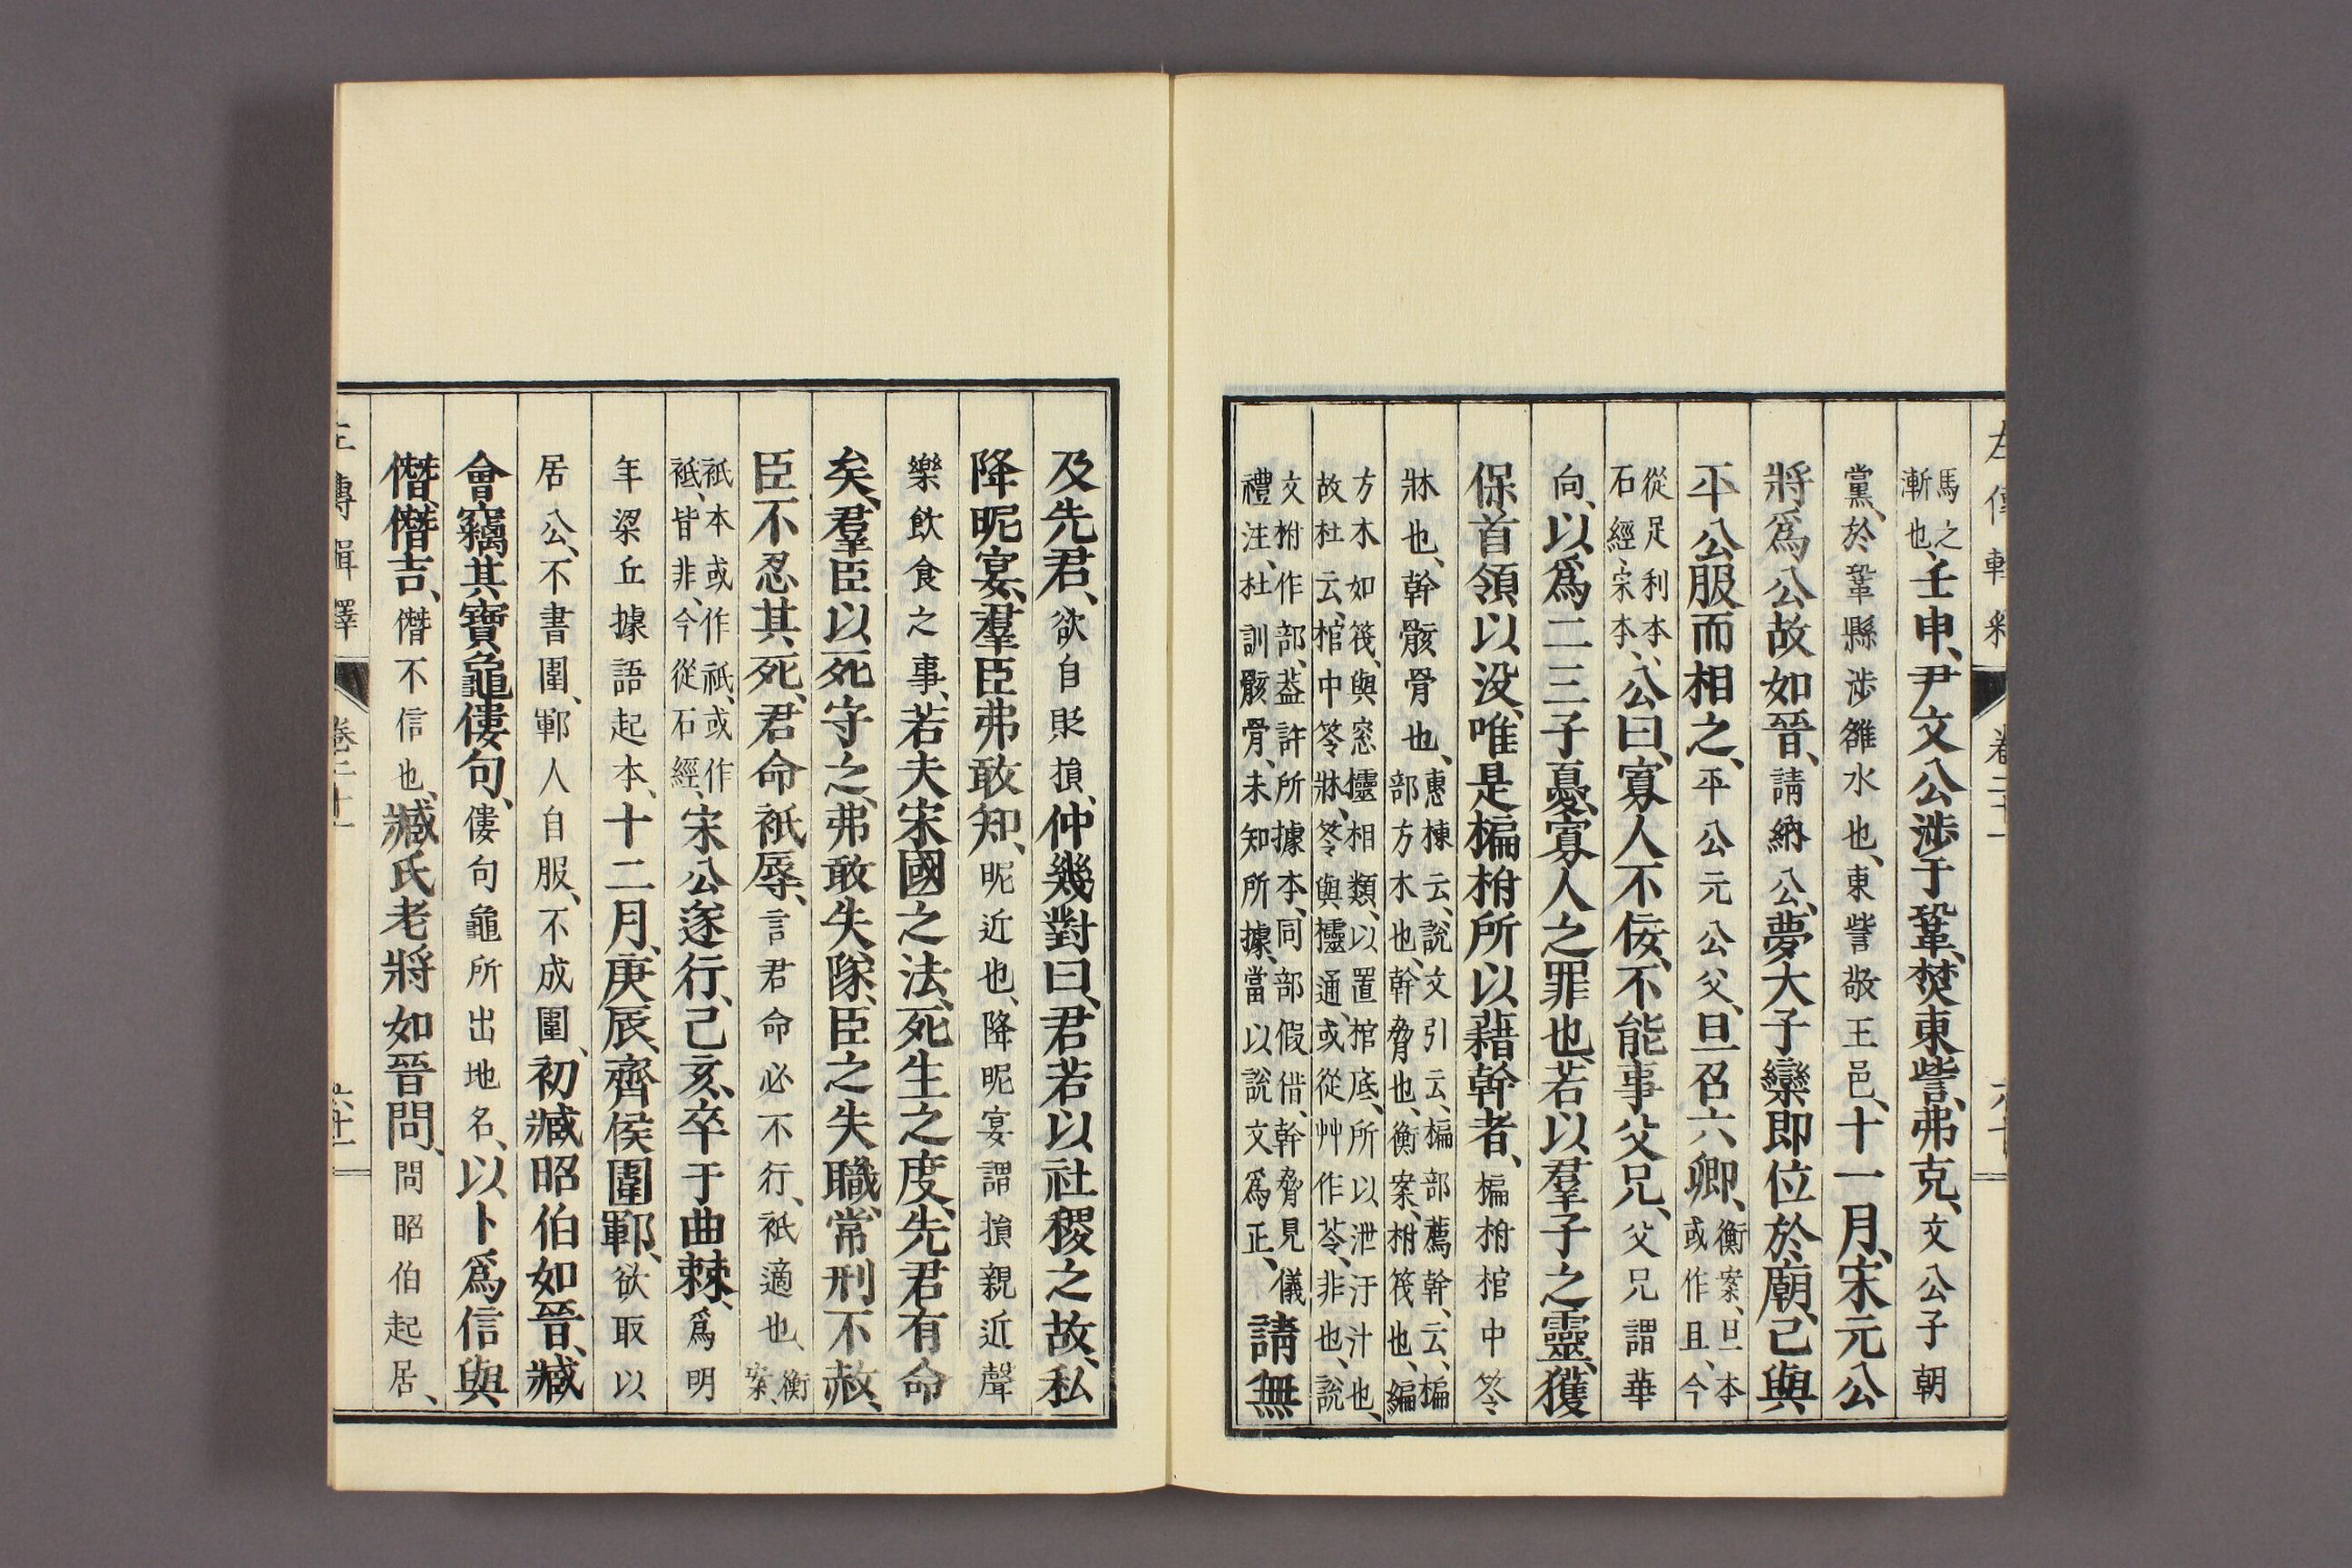 馬之漸也、壬申、尹文公涉于鞏、焚東訾、弗克、文公子朝
黨、於鞏縣涉雒水也、東訾敬王邑、十一月、宋元公
將爲公故如晉、請納公、夢大子欒即位於廟、己與
平公服而相之、平公元公父、旦召六卿、衡案、旦本或作且、今
從足利本、石經、宋本、公曰、寡人不佞、不能事父兄、父兄謂華
向、以爲二三子憂、寡人之罪也、若以羣子之靈、獲
保首領以没、唯是楄柎所以藉幹者、楄柎棺中笭
牀也、幹骸骨也、惠棟云、說文引云、楄部薦幹、云、楄部方木也、幹脅也、衡案、柎筏也、編
方木如筏、與窓櫺相類、以置棺底、所以泄汙汁也、故杜云、棺中笭牀、笭與櫺通、或從艸作苓、非也、說
文柎作部、蓋許所據本、同部假借、幹脅見儀禮注、杜訓骸骨、未知所據、當以說文爲正、請無
左傳輯釋 卷二十一
及先君、欲自貶損、仲幾對曰、君若以社稷之故、私
降昵宴、羣臣弗敢知、昵近也、降昵宴謂損親近聲
樂飲食之事、若夫宋國之法、死生之度、先君有命
矣、羣臣以死守之、弗敢失隊、臣之失職、常刑不赦、
臣不忍其死、君命衹辱、言君命必不行、衹適也、衡案、
衹本或作祇、或作秖、皆非、今從石經、宋公遂行、己亥、卒于曲棘、爲明
年梁丘據語起本、十二月、庚辰、齊侯圍鄆、欲取以
居公、不書圍、鄆人自服、不成圍、初臧昭伯如晉、臧
會竊其寶龜僂句、僂句龜所出地名、以卜爲信與
僭、僭吉、僭不信也、臧氏老將如晉問、問昭伯起居、
左傳輯釋 卷二十一 六十一